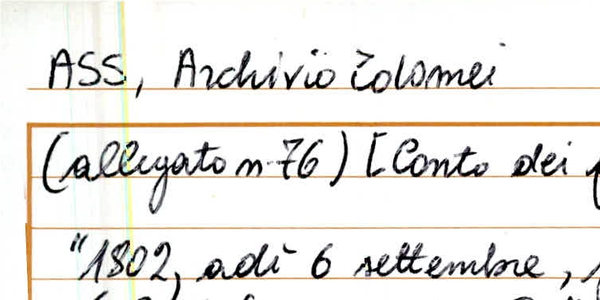 ASS, Archivio Tolomei
(allegato n. 76) [Conto dei
"1802, adì 6 settembre,